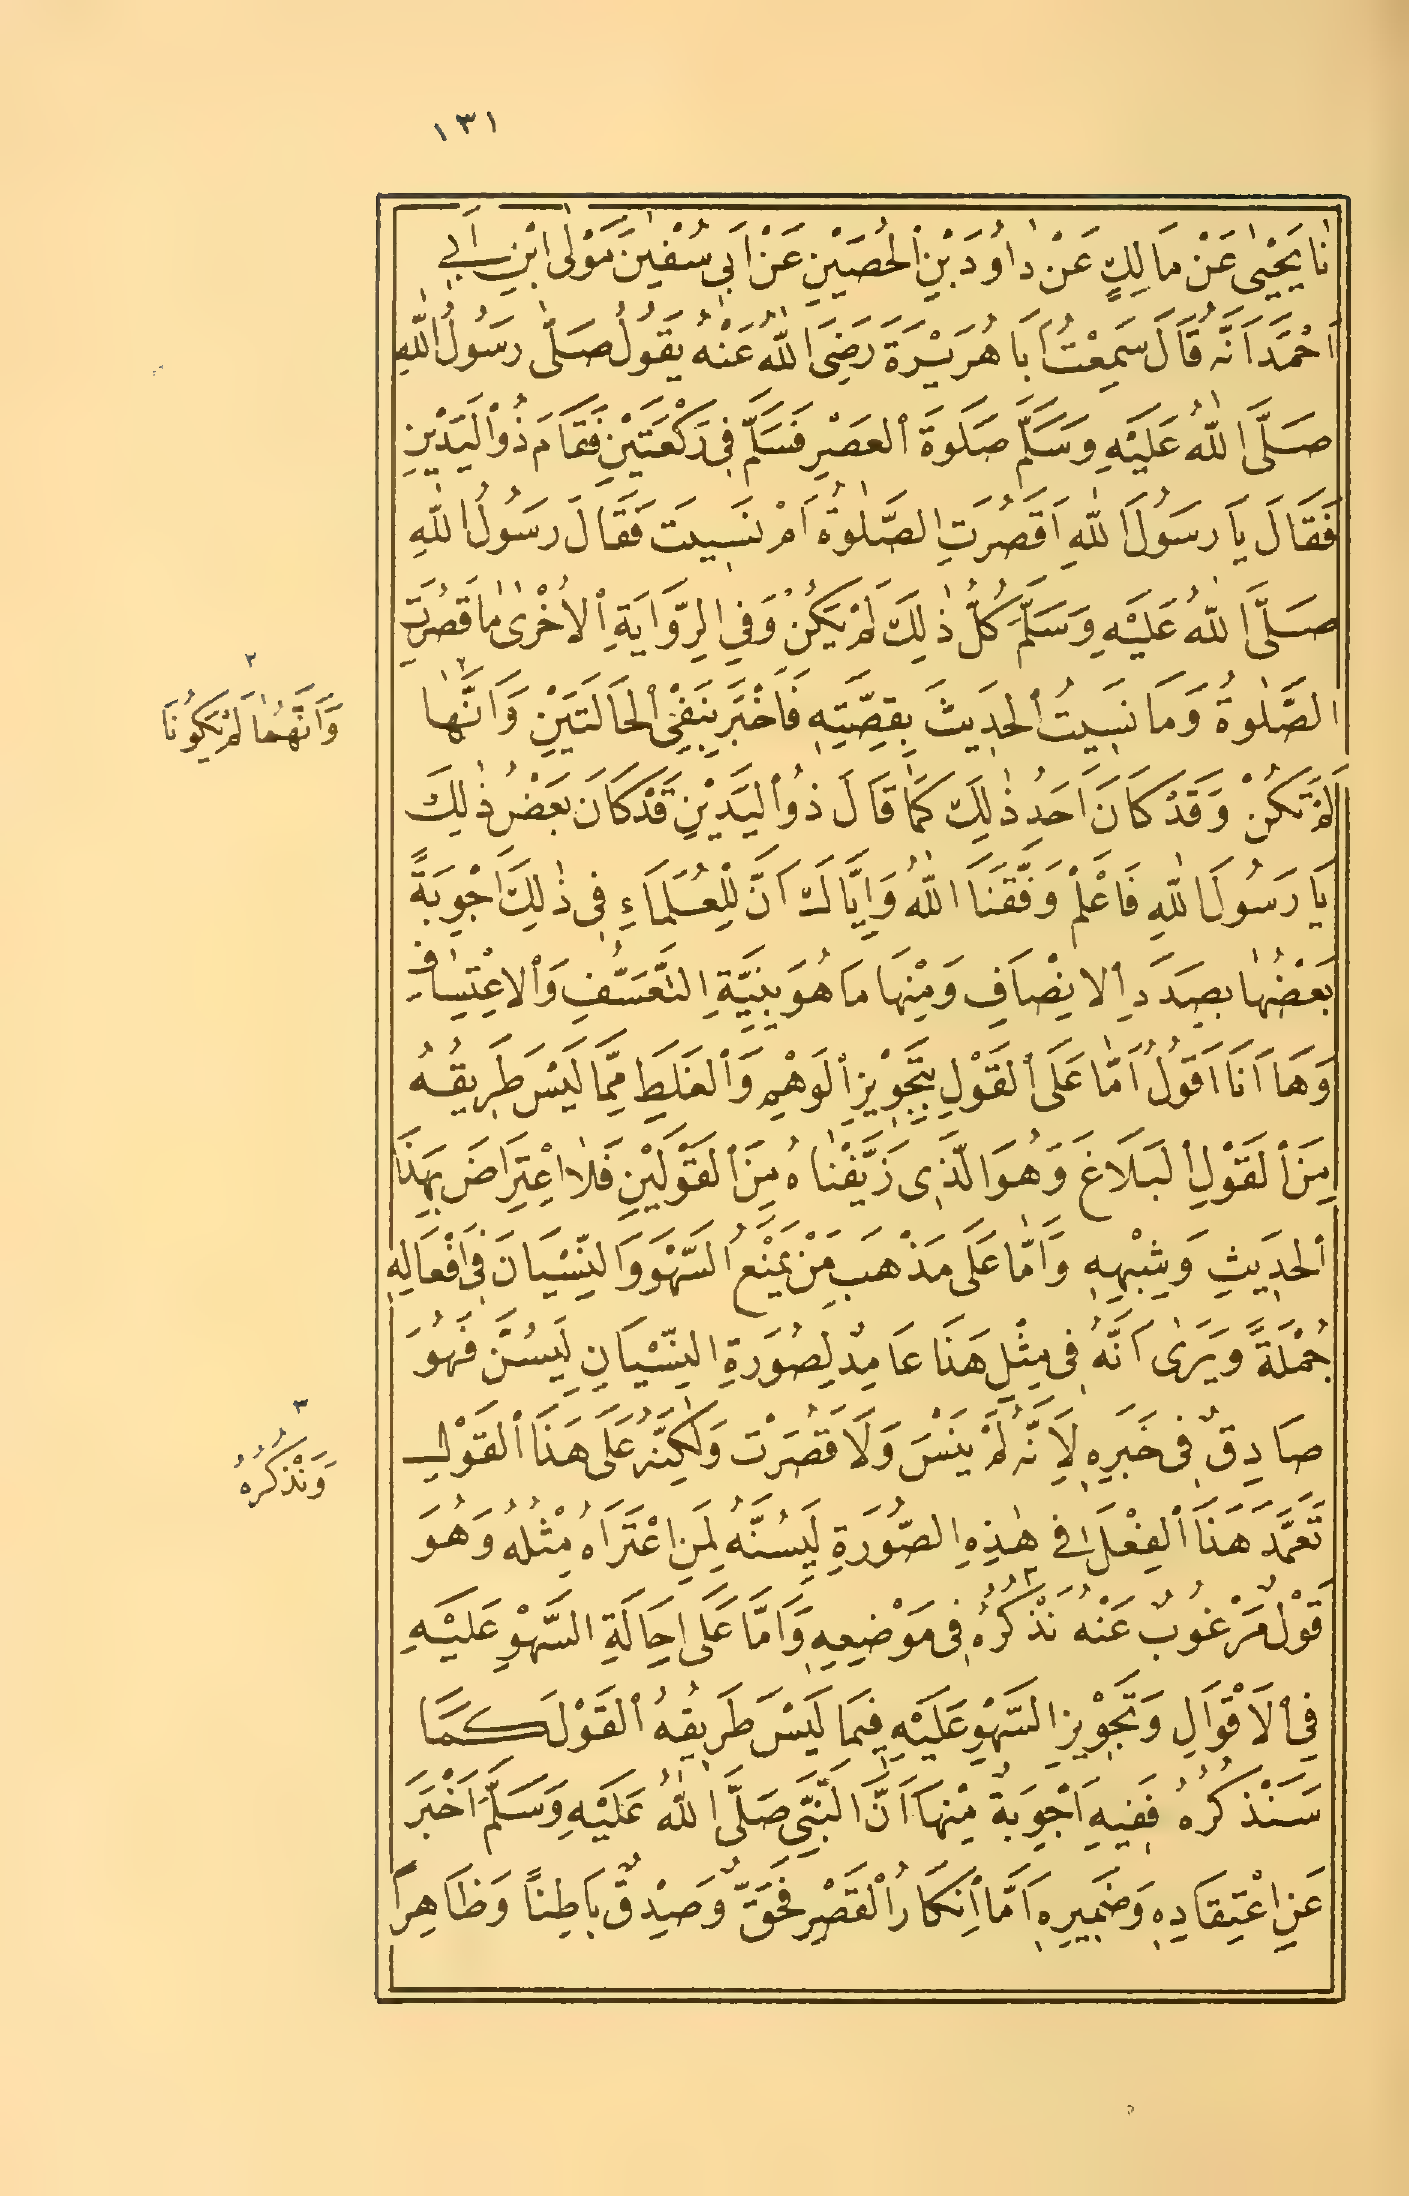 ١٣١
نَا يَحْيٰى عَنْ مَالِكٍ عَنْ دٰاوُدَ بْنِ الْحُصَيْنِ عَنْ اَبِى سُفْيٰنَ مَوْلٰى ابْنِ اَبِى
اَحْمَدَ اَنَّهُ قَالَ سَمِعْتُ اَبَا هُرَيْرَةَ رَضِىَ اللّٰهُ عَنْهُ يَقُولُ صَلّٰى رَسُولُ اللّٰهِ
صَلَّى اللّٰهُ عَلَيْهِ وَسَلَّمَ صَلَوةَ الْعَصْرِ فَسَلَّمَ فِى رَكْعَتَيْنِ فَقَامَ ذُو الْيَدَيْنِ
فَقَالَ يَا رَسُولَ اللّٰهِ اَقَصُرَتِ الصَّلٰوةُ اَمْ نَسِيتَ فَقَالَ رَسُولُ اللّٰهِ
صَلَّى اللّٰهُ عَلَيْهِ وَسَلَّمَ كُلُّ ذٰلِكَ لَمْ يَكُنْ وَفِى الرِّوَايَةِ الْاُخْرٰى مٰا قَصُرَتِ
الصَّلٰوةُ وَمَا نَسِيتُ الْحَدِيثَ بِقِصَّتِهِ فَاَخْبَرَ بِنَفْىِ الْحَالَتَيْنِ وَاَنَّهٰا ٢
لَمْ تَكُنْ وَقَدْ كَانَ اَحَدُ ذٰلِكَ كَمَا قَالَ ذُو الْيَدَيْنِ قَدْ كَانَ بَعْضُ ذٰلِكَ
يَا رَسُولَ اللّٰهِ فَاعْلَمْ وَفَّقَنَا اللّٰهُ وَاِيَّاكَ اَنَّ لِلْعُلَمَاءِ فِى ذٰلِكَ اَجْوِبَةً
بَعْضُهٰا بِصَدَدِ الْاِنْصَافِ وَمِنْهَا مَا هُوَ بِنِيَّةِ التَّعَسُّفِ وَالْاِعْتِسَافِ
وَهَا اَنَا اَقُولُ اَمَّا عَلَى الْقَوْلِ بِتَجْوِيزِ الْوَهْمِ وَالْغَلَطِ مِمَّا لَيْسَ طَرِيقُهُ
مِنَ الْقَوْلِ الْبَلَاغَ وَهُوَ الَّذِى زَيَّفْنٰاهُ مِنَ الْقَوْلَيْنِ فَلَا اعْتِرَاضَ بِهٰذَا
الْحَدِيثِ وَشِبْهِهِ وَاَمَّا عَلَى مَذْهَبِ مَنْ يَمْنَعُ السَّهْوَ وَالنِّسْيَانَ فِى اَفْعَالِهِ
جُمْلَةً وَيَرٰى اَنَّهُ فِى مِثْلِ هٰذَا عَامِدٌ لِصُورَةِ النِّسْيَانِ لِيَسُنَّ فَهُوَ
صَادِقٌ فِى خَبَرِهِ لِاَنَّهُ لَمْ يَنْسَ وَلَا قَصُرَتْ وَلٰكِنَّهُ عَلَى هٰذَا الْقَوْلِ
تَعَمَّدَ هٰذَا الْفِعْلَ فِى هٰذِهِ الصُّورَةِ لِيَسُنَّهُ لِمَنِ اعْتَرَاهُ مِثْلُهُ وَهُوَ
قَوْلٌ مَرْغُوبٌ عَنْهُ نَذْكُرُهُ ٣ فِى مَوْضِعِهِ وَاَمَّا عَلَى اِحَالَةِ السَّهْوِ عَلَيْهِ
فِى الْاَقْوَالِ وَتَجْوِيزِ السَّهْوِ عَلَيْهِ فِيمَا لَيْسَ طَرِيقُهُ الْقَوْلَ كَمَا
سَنَذْكُرُهُ فَفِيهِ اَجْوِبَةٌ مِنْهَا اَنَّ النَّبِىَّ صَلَّى اللّٰهُ عَلَيْهِ وَسَلَّمَ اَخْبَرَ
عَنِ اعْتِقَادِهِ وَضَمِيرِهِ اَمَّا اِنْكَارُ الْقَصْرِ فَحَقٌّ وَصِدْقٌ بَاطِنًا وَظَاهِرًا
٢
وَاَنَّهُمَا لَمْ يَكُونَا
٣
وَنَذْكُرُهُ